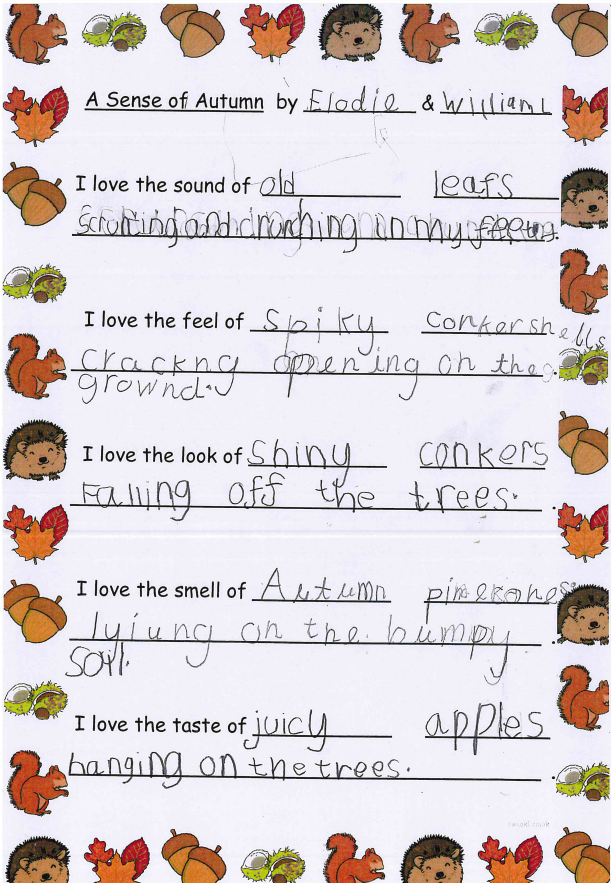 A Sense of Autumn by Elodie & William L
I love the sound of old leafs
and crunching on my feet.
I love the feel of Spiky conkershells
crackng opening on the
grownd.
I love the look of Shiny conkers
Falling off the trees.
I love the smell of Autumn pinekones
lyiung on the bumpy
Soil.
I love the taste of juicy apples
hanging on the trees.